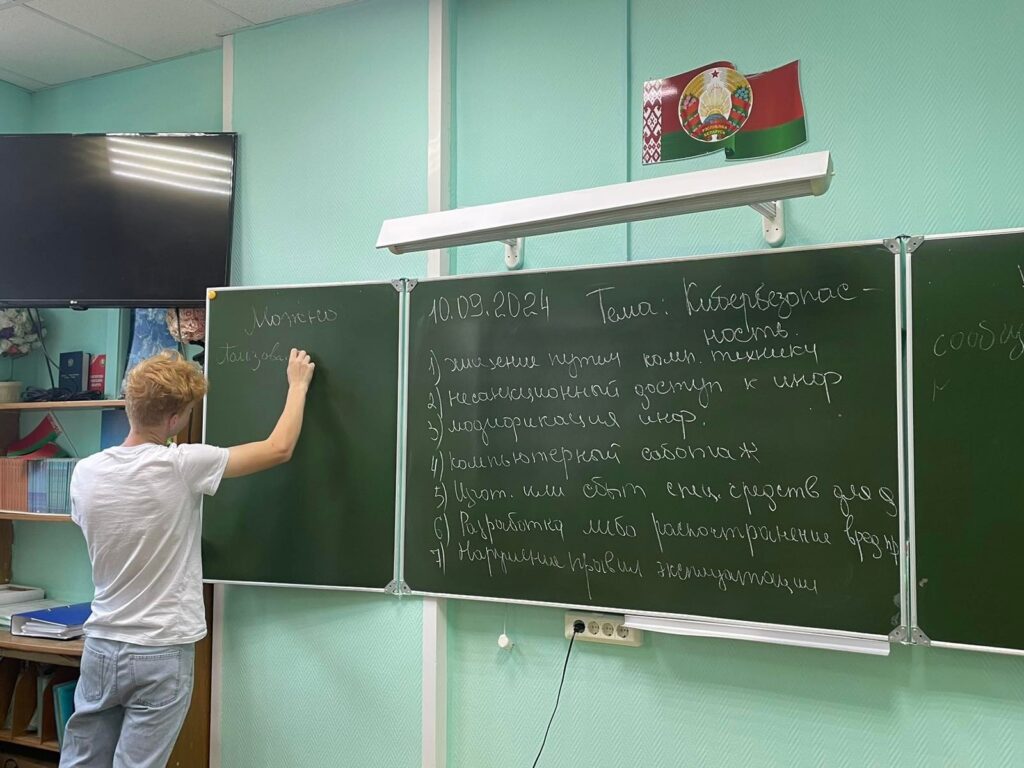 Можно
Пользова
10.09.2024 Тема: Кибербезопас-
ность.
1) хищение путём комп. технику
2) несанкционный доступ к инфор
3) модификация инф.
4) компьютерный саботаж
5) Изгот. или сбыт спец. средств для д
6) Разработка либо распостранение вред пр
7) Нарушение правил эксплуатации
сообщ